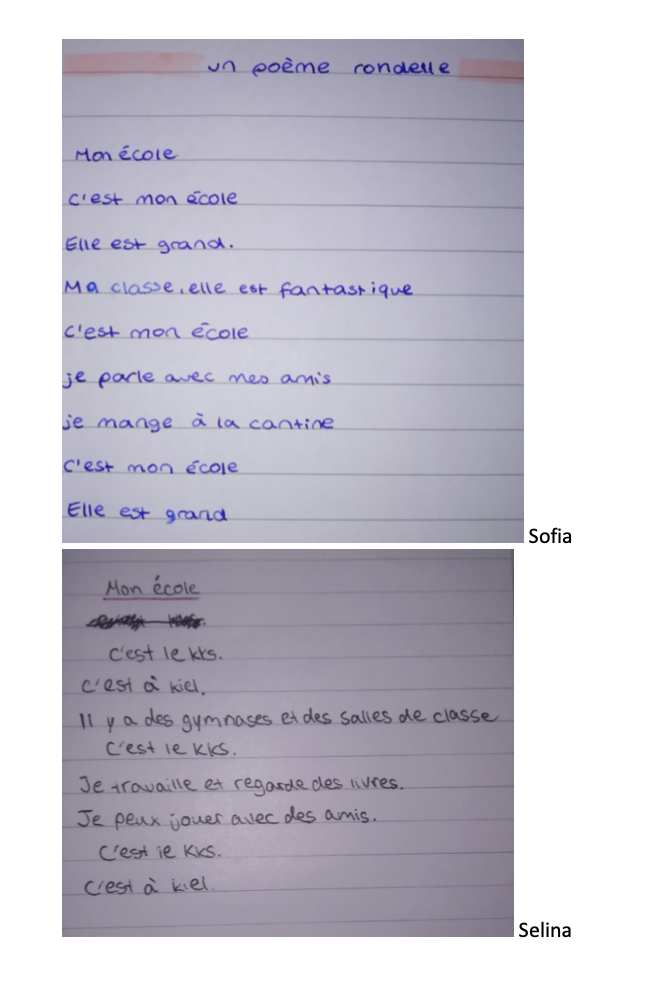 un poème rondelle
Mon école
C'est mon école
Elle est grand.
Ma classe, elle est fantastique
C'est mon école
je parle avec mes amis
je mange à la cantine
C'est mon école
Elle est grand
Sofia
Mon école
C'est le KKS.
C'est à Kiel.
Il y a des gymnases et des salles de classe
C'est le KKS.
Je travaille et regarde des livres.
Je peux jouer avec des amis.
C'est le KKS.
C'est à Kiel.
Selina